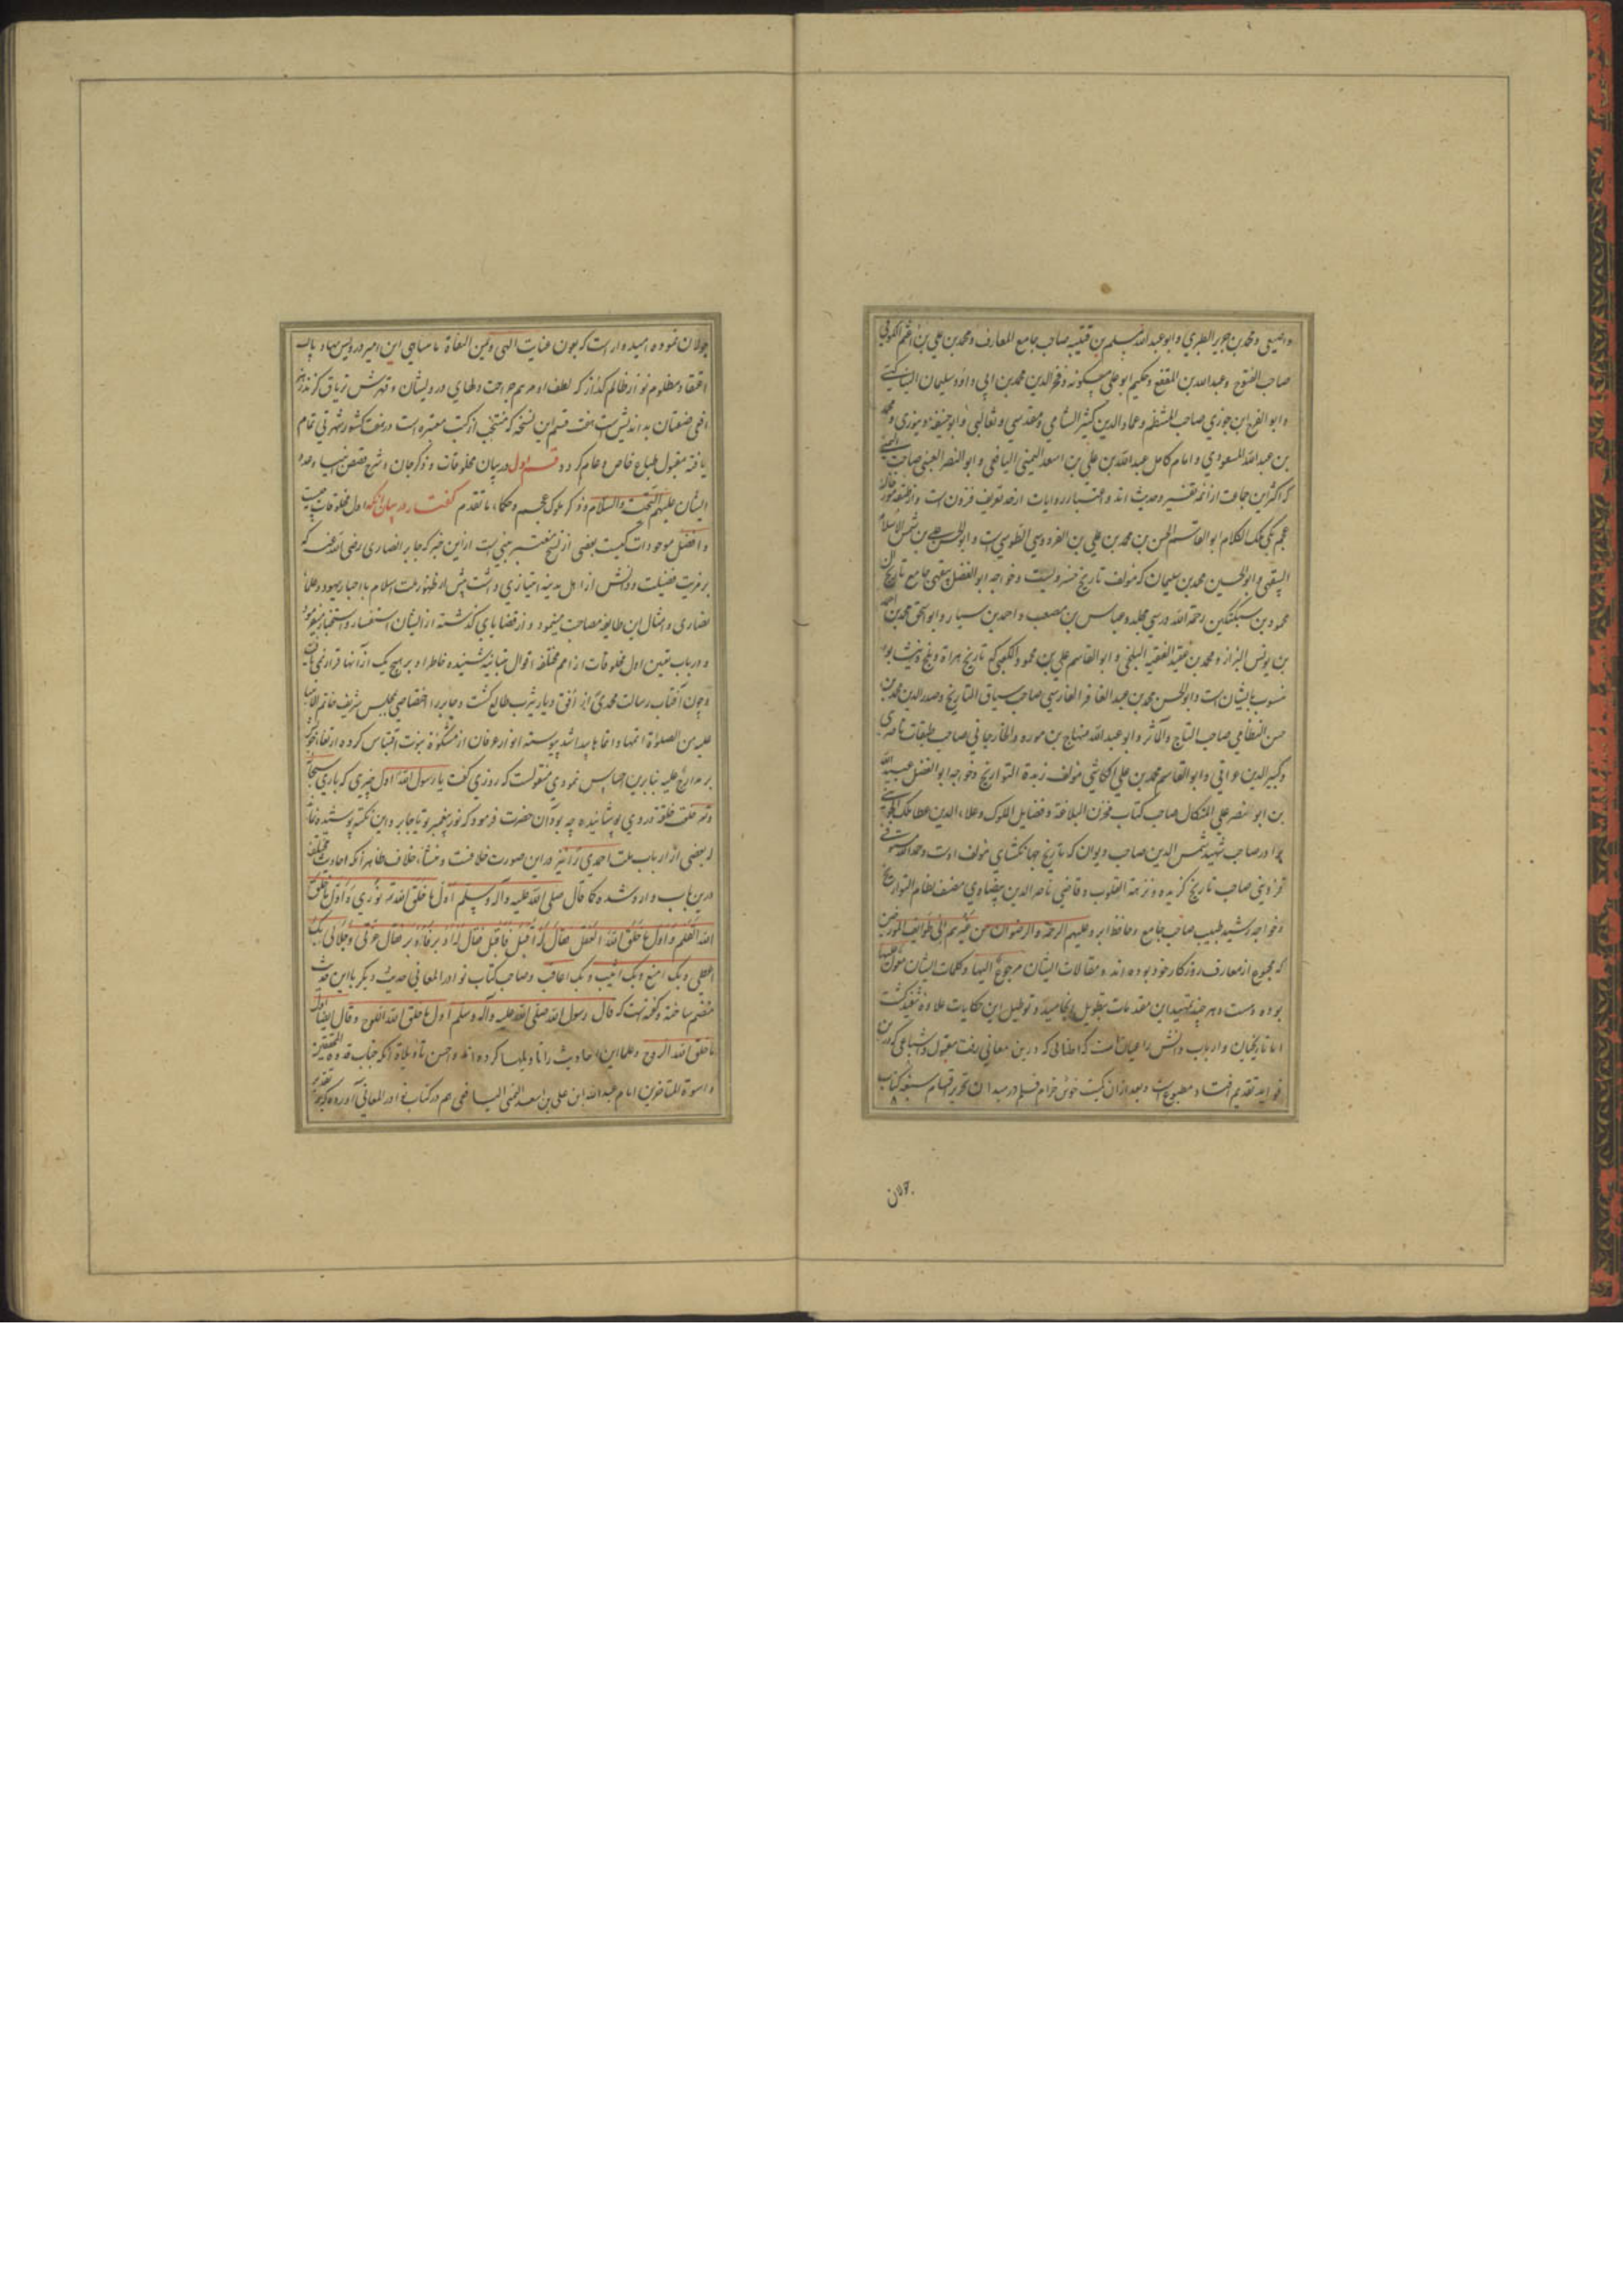 و اصمعی و محمد بن جریر الطبری و ابو عبدالله مسلم بن قتیبه صاحب جامع المعارف و محمد بن علی بن اعثم الکوفی
صاحب الفتوح و عبدالله بن المقفع و حکیم ابو علی مسکویه و فخرالدین محمد بن ابی داود سلیمان البناکتی
و ابو الفرج ابن جوزی صاحب المنتظم و عماد الدین کثیر الشامی و مقدسی و ثعالبی و ابو حنیفه دینوری و محمد
بن عبدالله المسعودی و امام کامل عبدالله بن علی بن اسعد الیمنی الیافعی و ابو النصر العتبی صاحب الیمینی
که اکثر این جماعت از ائمه تفسیر و حدیث اند و اعتبار روایات از حد تعریف فزون است و از طبقه مورخان
عجم یکی ملک الکلام ابو القاسم الحسن بن محمد بن علی بن الفردوسی الطوسی است و ابو الحسن علی بن شمس الاسلام
البیهقی و ابو الحسین محمد بن سلیمان که مؤلف تاریخ خسرویست و خواجه ابو الفضل بیهقی جامع تاریخ آل
محمود بن سبکتکین رحمه الله در سی مجلد و عباس بن مصعب و احمد بن سیار و ابو اسحق محمد بن احمد
بن یونس البزاز و محمد بن عقیل الفقیه البلخی و ابو القاسم علی بن محمود الکعبی که تاریخ هراة و بلخ و نیشابور
منسوب بایشان است و ابو الحسن محمد بن عبد الغافر الفارسی صاحب سیاق التاریخ و صدر الدین محمد بن
حسن النظامی صاحب التاج و المآثر و ابو عبدالله منهاج بن الجوزجانی صاحب طبقات ناصری
و کبیر الدین عراقی و ابو القاسم محمد بن علی الکاشی مؤلف زبدة التواریخ و خواجه ابو الفضل عبیدالله
بن ابو نصر علی المیکال صاحب کتاب مخزن البلاغة و فضایل الملوک و علاء الدین عطا ملک الجوینی
برادر صاحب شهید شمس الدین صاحب دیوان که تاریخ جهانکشای مؤلف اوست و حمدالله مستوفی
قزوینی صاحب تاریخ گزیده و نزهة القلوب و قاضی ناصر الدین بیضاوی مصنف نظام التواریخ
و خواجه رشید طبیب صاحب جامع و حافظ ابرو علیهم الرحمة و الرضوان من غیرهم الی طوایف المورخین
که مجموع از معارف روزکار خود بوده اند و مقالات ایشان مرجوع الیها و کلمات ایشان معول علیها
بوده و هست و هر چند تمهید این مقدمات بتطویل انجامید و توطیل این حکایات علاوه تنفید کشت
اما تاریخیان و ارباب دانش را عیانست که اطنابی که درین معانی رفت مقبول و اشباعی که درین
فواید تقدیم افتاد مطبوع است و بعد از ان کمیت خوش خرام قلم در میدان تحریر اقسام سبعه کتاب
جولان
جولان نموده امیدوار است که بعون عنایت الهی و یمن التفاة نامتناهی این امیر درویش نهاد پاک
اعتقاد مظلوم نواز ظالم کداز که لطف او مرهم جراحت دلهای درویشان و قهرش تریاق کزنده
افعی صفتان بد اندیش است هفت قسم این نسخه که منتخب از کتب معتبره است در هفت کشور شهرتی تمام
یافته مقبول طباع خاص و عام کردد قسم اول در بیان مخلوقات و ذکر جان و شرح قصص انبیا و
ایشان علیهم التحیة و السلام و ذکر ملوک عجم و حکماء ما تقدم کفتار در بیان آنکه اول مخلوقات چیست
و افضل موجودات کیست بعضی از نسخ معتبر مبنی است از این خبر که جابر انصاری رضی الله عنه که
بر مزیت فضیلت و دانش از اهل مدینه امتیازی داشت پیش از ظهور ملت اسلام با احبار یهود و علماء
نصاری و امثال این طایفه مصاحبت مینمود و از قضایای کذشته از ایشان استفسار و استخبار میفرمود
و در باب تعیین اول مخلوقات از امم مختلفه اقوال متباینه شنیده خاطر او بر هیچ یک از آنها قرار نمی یافت
و چون آفتاب رسالت محمدی از افق دیار یثرب طالع کشت و جابر را اختصاصی بمجلس شریف خاتم الانبیا
علیه من الصلوة اتمها و انماها پیدا شد پیوسته انوار عرفان از مشکوة نبوت اقتباس کرده ارتقا
بر مدارج علیه بنابرین احساس نمودی منقولست که روزی کفت یا رسول الله اول چیزی که باری سبحانه
و تعالی خلعت خلقت در وی پوشانیده چه بود آن حضرت فرمود که نور پیغمبر تو یا جابر و این نکته پوشیده نماند
که بعضی از ارباب ملت احمدی را نیز در این صورت خلافست و منشأ خلاف ظاهرا آنکه احادیث مختلفه
درین باب وارد شده کما قال صلی الله علیه و آله و سلم اول ما خلق الله نوری و اول ما خلق
الله القلم و اول ما خلق الله العقل فقال له اقبل فاقبل فقال له ادبر فادبر فقال عزتی و جلالی بک
اعطی و بک امنع و بک اثیب و بک اعاقب و صاحب کتاب نوادر المعانی حدیث دیکر با این حدیث
منضم ساخته و کفته است که قال رسول الله صلی الله علیه و آله و سلم اول ما خلق الله اللوح و قال ایضا اول
ما خلق الله الروح و علما این احادیث را تاویلها کرده اند و احسن تاویلاة آنکه جناب قدوة المحققین
و اسوة المتاخرین امام عبدالله ابن علی بن اسعد الیمنی الیافعی هم در کتاب نوادر المعانی آورده که